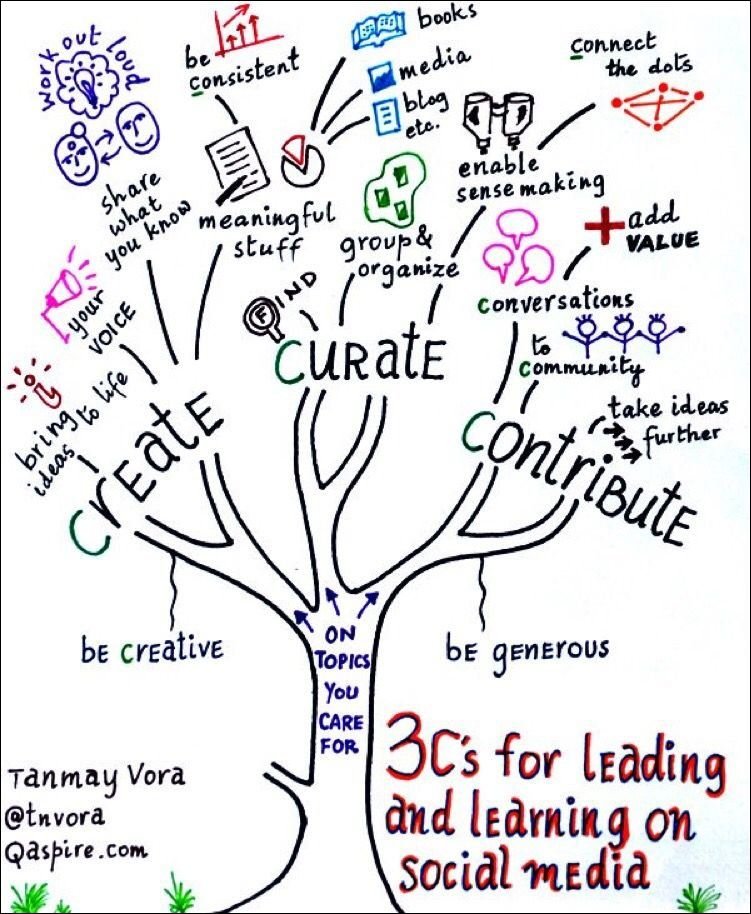 work out loud
share
what
you know
your
VOICE
bring
ideas
to life
CREatE
be
consistent
meaningful
stuff
books
media
blog
etc.
group &
organize
FIND
CURatE
enable
sense making
connect
the dots
conversations
add
VALUE
to
community
take ideas
further
ContriBUtE
be creative
be generous
ON
TOPICS
YOU
CARE
FOR
3C's for leading
and learning on
social media
Tanmay Vora
@tnvora
Qaspire.com